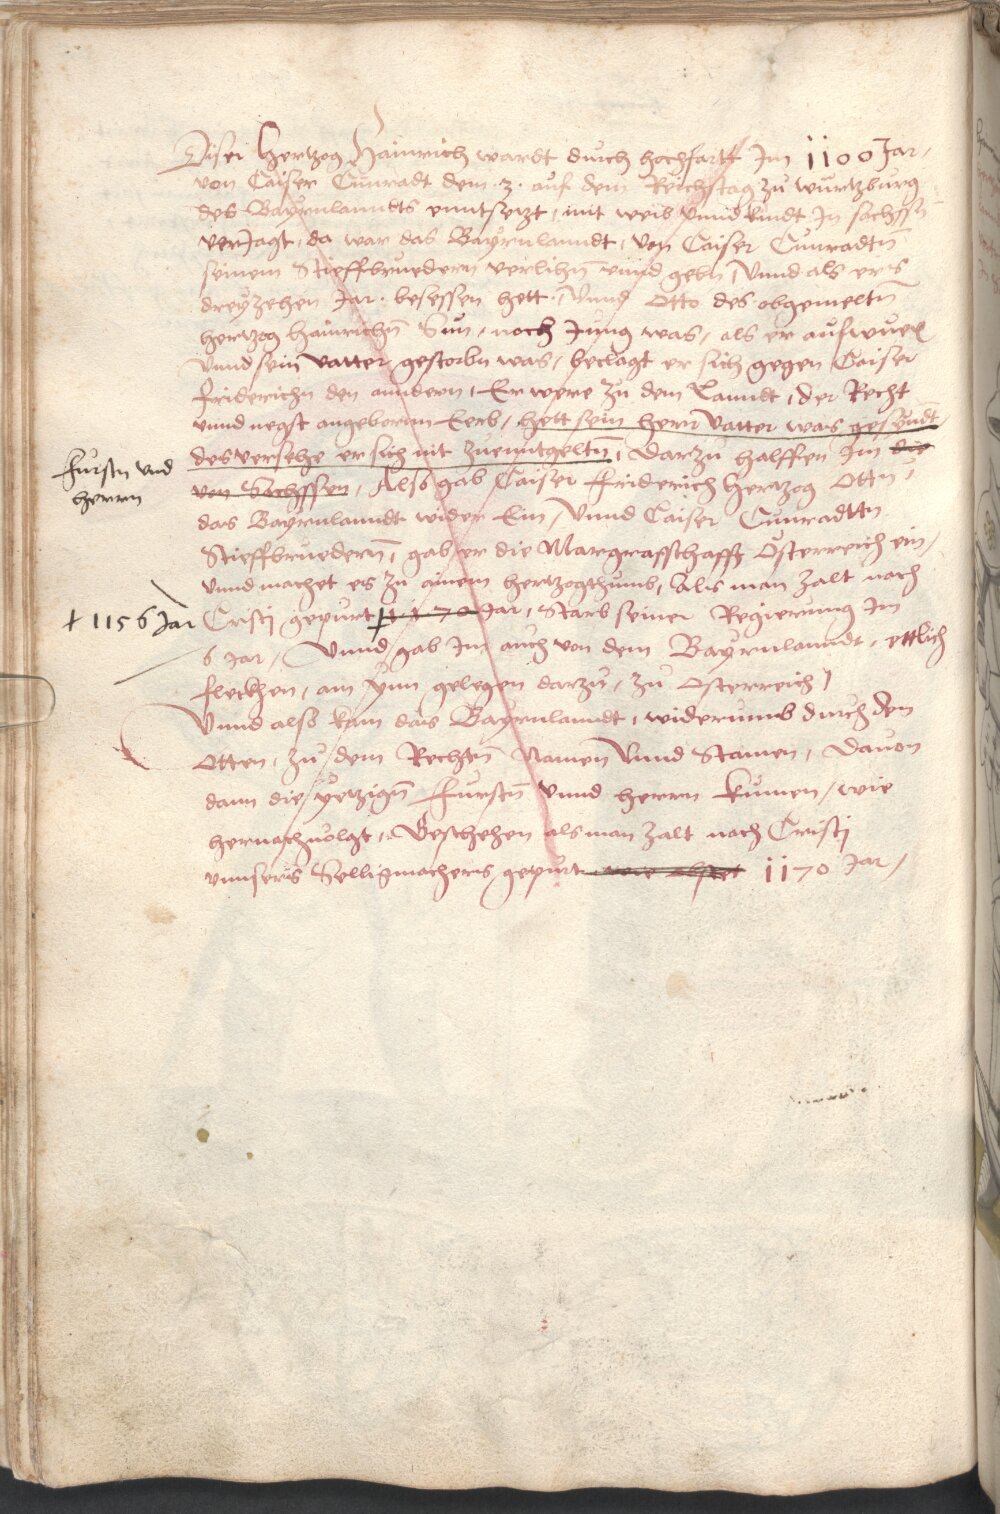 Diser Hertzog Hainrich wardt durch hochfartt Im 1100 Jar,
von Caiser Cunradt dem .3. auf dem Reichstag zu wurtzburg
des Bayrnlanndts enntsetzt, mit weib vnnd kindt In sachssn̄
verJagt, da war das Bayrnlanndt, von Caiser Cunradtn̄
seinem Stieffbruedern verlihn̄ vnnd gebn, Vnnd als er's
dreyzehen Jar. besessen hett. Vnnd Otto des obgemeltn̄
hertzog hainrichn̄ Sun, noch Jung was, als er aufwuex
Vnnd sein vatter gestorbn was, beclagt er sich gegen Caiser
friderichn den anndern, Er were zu dem Lanndt, der Recht
vnnd negst angeborinn Eerb, hett sein herr Vatter was gesündt
des versehe er sich nit zuenntgeltn̄, Darzu halffen Im die
von Sachssen, Also gab Caiser friderich hertzog Ottn,
fursten vnd
herrn
das Bayrnlanndt wider Ein, Vnnd Caiser Cunradtn
Stieffbruedern, gab er die Margrafschafft Osterreich ein,
vnnd machet es zu ainem hertzogthumb, Als man zalt nach
+ 1156 Jar
Cristj gepurt + 1170 Jar, Starb seiner Regierung Im
6 Jar, Vnnd gab Im auch von dem Bayrnlanndt, ettlich
fleckhen, am ynn gelegen darzu, zu Osterreich
Vnnd also kam das Bayrnlanndt, widerumb durch den
Otten, zu dem Rechtn̄ Namen Vnnd Stamen, Dauon
dann die yetzign̄ furstn̄ vnnd herrn kumen, wie
hernachuolgt, Beschehen als man zalt nach Cristj
vnnsers Selligmachers gepurt 1170 Jar,